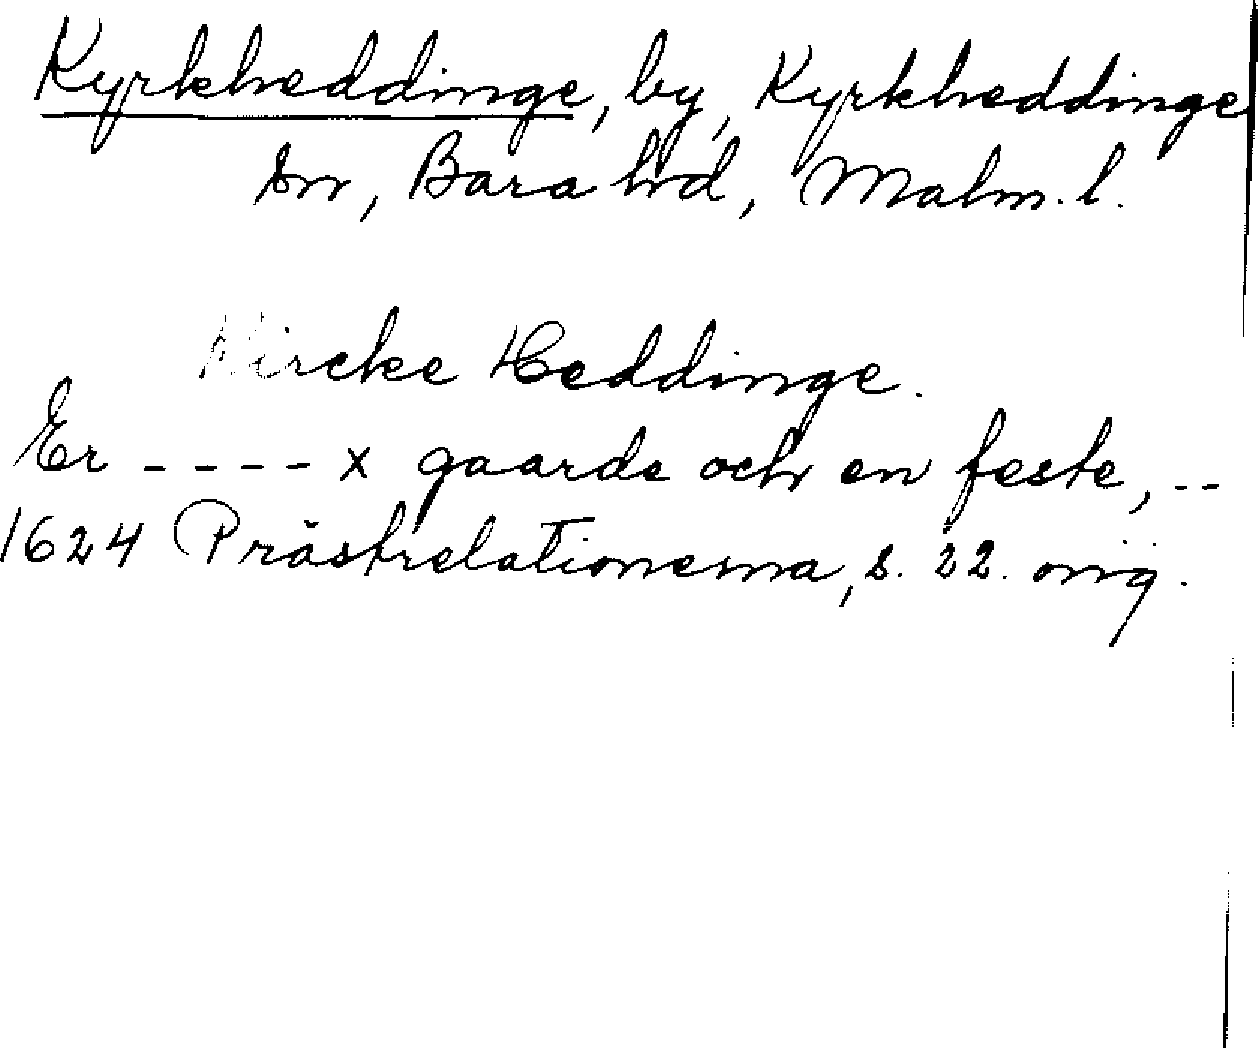 Kyrkheddinge, by, Kyrkheddinge
sn, Bara hd, Malm. l.
Kircke Heddinge.
Er ---- x gaarde och en feste, --
1624 Prästrelationerna, s. 22. orig.